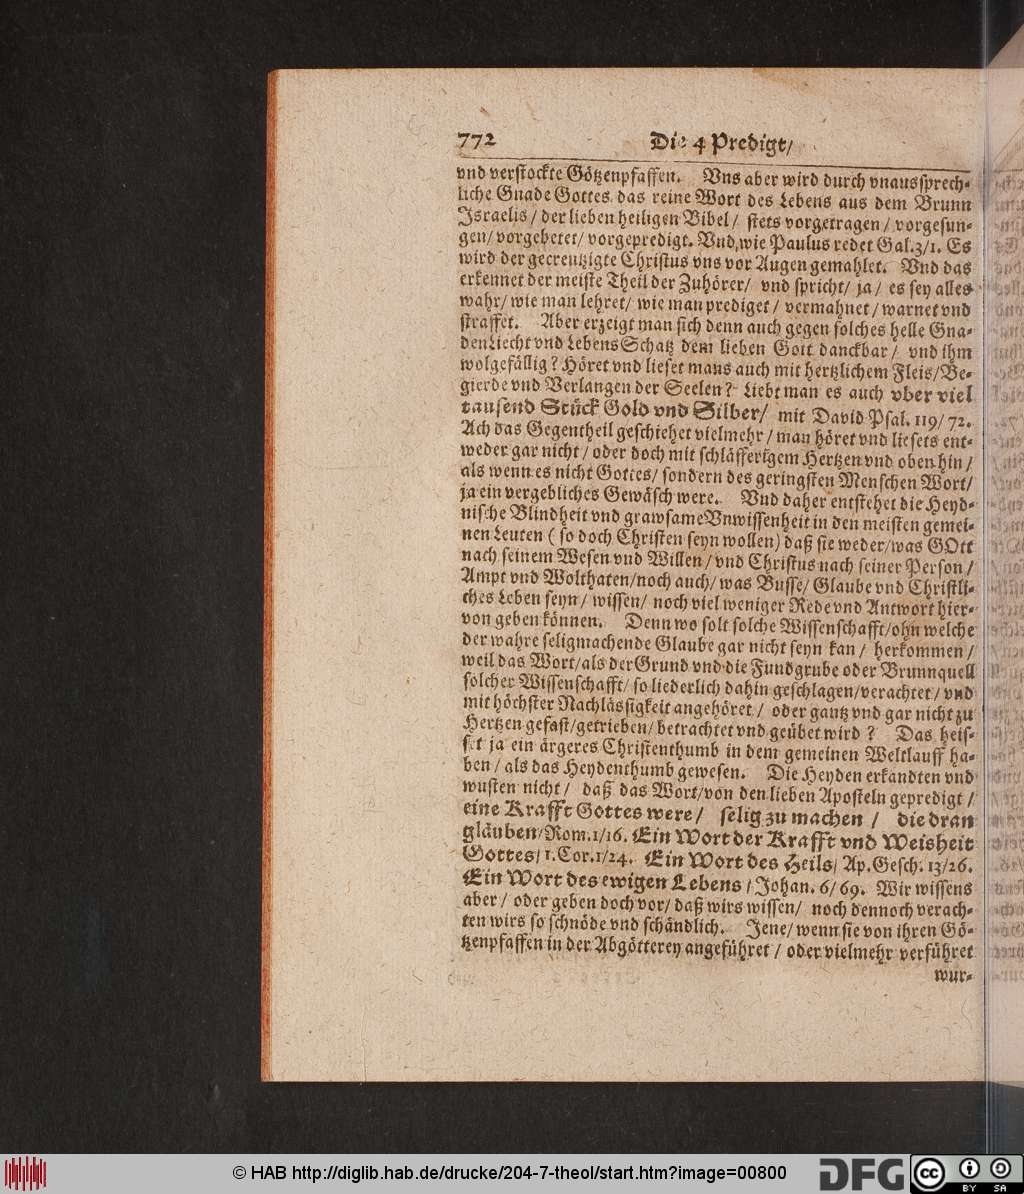 772 Die 4 Predigt/
vnd verstockte Götzenpfaffen. Vns aber wird durch vnaussprech-
liche Gnade Gottes das reine Wort des Lebens aus dem Brunn
Israelis/ der lieben heiligen Bibel/ stets vorgetragen/ vorgesun-
gen/ vorgebetet/ vorgepredigt. Vnd, wie Paulus redet Gal.3/1. Es
wird der gecreutzigte Christus vns vor Augen gemahlet. Vnd das
erkennet der meiste Theil der Zuhörer/ vnd spricht/ ja/ es sey alles
wahr/ wie man lehret/ wie man prediget/ vermahnet/ warnet vnd
straffet. Aber erzeigt man sich denn auch gegen solches helle Gna-
den Liecht vnd Lebens Schatz dem lieben Gott danckbar/ vnd ihm
wolgefällig? Höret vnd lieset mans auch mit hertzlichem Fleis/ Be-
gierde vnd Verlangen der Seelen? Liebt man es auch vber viel
tausend Stück Gold vnd Silber/ mit David Psal. 119/72.
Ach das Gegentheil geschiehet vielmehr/ man höret vnd liesets ent-
weder gar nicht/ oder doch mit schläfferigem Hertzen vnd oben hin/
als wenn es nicht Gottes/ sondern des geringsten Menschen Wort/
ja ein vergebliches Gewäsch were. Vnd daher entstehet die Heyd-
nische Blindheit vnd grawsame Vnwissenheit in den meisten gemei-
nen Leuten (so doch Christen seyn wollen) daß sie weder/ was GOtt
nach seinem Wesen vnd Willen/ vnd Christus nach seiner Person/
Ampt vnd Wolthaten/ noch auch/ was Busse/ Glaube vnd Christli-
ches Leben seyn/ wissen/ noch viel weniger Rede vnd Antwort hier-
von geben können. Denn wo solt solche Wissenschafft/ ohn welche
der wahre seligmachende Glaube gar nicht seyn kan/ herkommen/
weil das Wort/ als der Grund vnd die Fundgrube oder Brunnquell
solcher Wissenschafft/ so liederlich dahin geschlagen/ verachtet/ vnd
mit höchster Nachlässigkeit angehöret/ oder gantz vnd gar nicht zu
Hertzen gefast/ getrieben/ betrachtet vnd geübet wird? Das heis-
set ja ein ärgeres Christenthumb in dem gemeinen Weltlauff ha-
ben/ als das Heydenthumb gewesen. Die Heyden erkandten vnd
wusten nicht/ daß das Wort/ von den lieben Aposteln gepredigt/
eine Krafft Gottes were/ selig zu machen/ die dran
gläuben/ Rom.1/16. Ein Wort der Krafft vnd Weisheit
Gottes/ 1.Cor.1/24. Ein Wort des Heils/ Ap.Gesch.13/26.
Ein Wort des ewigen Lebens/ Johan. 6/69. Wir wissens
aber/ oder geben doch vor/ daß wirs wissen/ noch dennoch verach-
ten wirs so schnöde vnd schändlich. Jene/ wenn sie von ihren Gö-
tzenpfaffen in der Abgötterey angeführet/ oder vielmehr verführet
wur-
© HAB http://diglib.hab.de/drucke/204-7-theol/start.htm?image=00800
DFG
cc BY SA